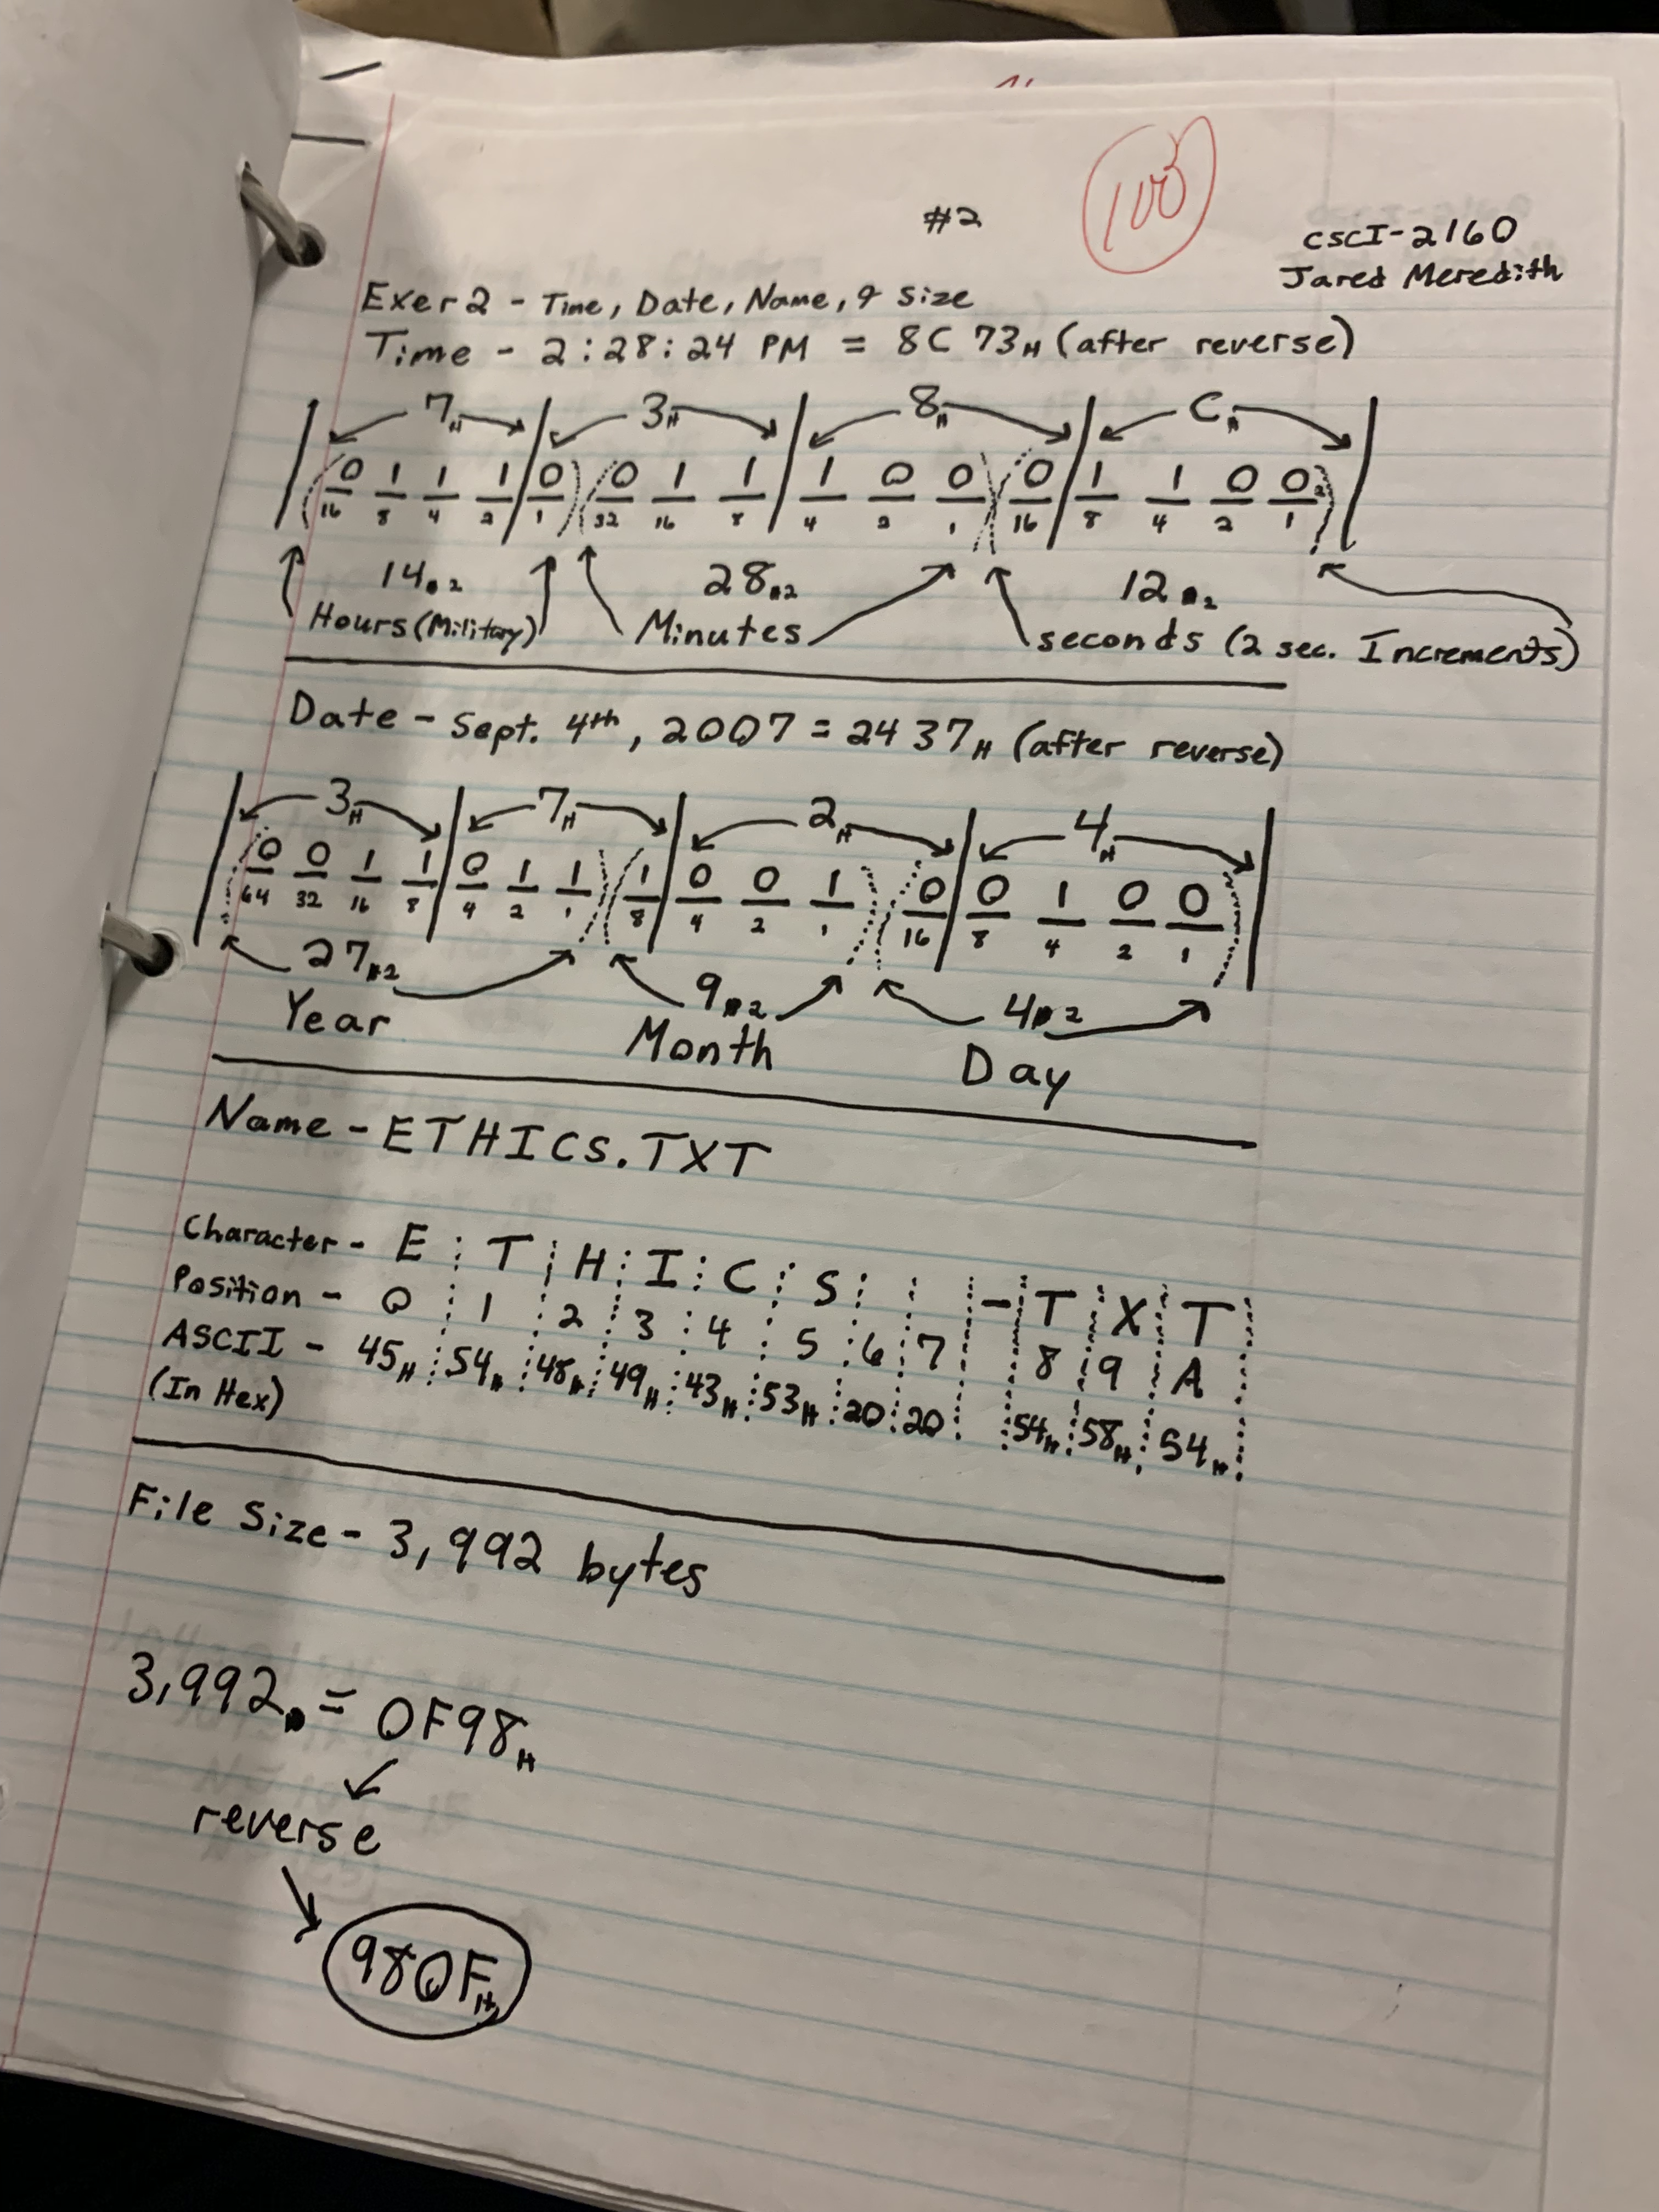 #2
100
CSCI-2160
Jared Meredith
Exer 2 - Time, Date, Name, & Size
Time - 2:28:24 PM = 8C 73H (after reverse)
7H 3H 8H CH
0 1 1 1 0 0 1 1 1 0 0 0 1 1 0 0
16 8 4 2 1 32 16 8 4 2 1 16 8 4 2 1
14 28 12
Hours (Military) Minutes seconds (2 sec. Increments)
Date - Sept. 4th, 2007 = 24 37H (after reverse)
3H 7H 2H 4H
0 0 1 1 0 1 1 1 0 0 1 0 0 1 0 0
64 32 16 8 4 2 1 8 4 2 1 16 8 4 2 1
27 9 4
Year Month Day
Name - ETHICS.TXT
Character - E T H I C S - T X T
Position - 0 1 2 3 4 5 6 7 8 9 A
ASCII - 45H 54H 48H 49H 43H 53H 20 20 54H 58H 54H
(In Hex)
File Size - 3,992 bytes
3,992D = 0F98H
reverse
980FH